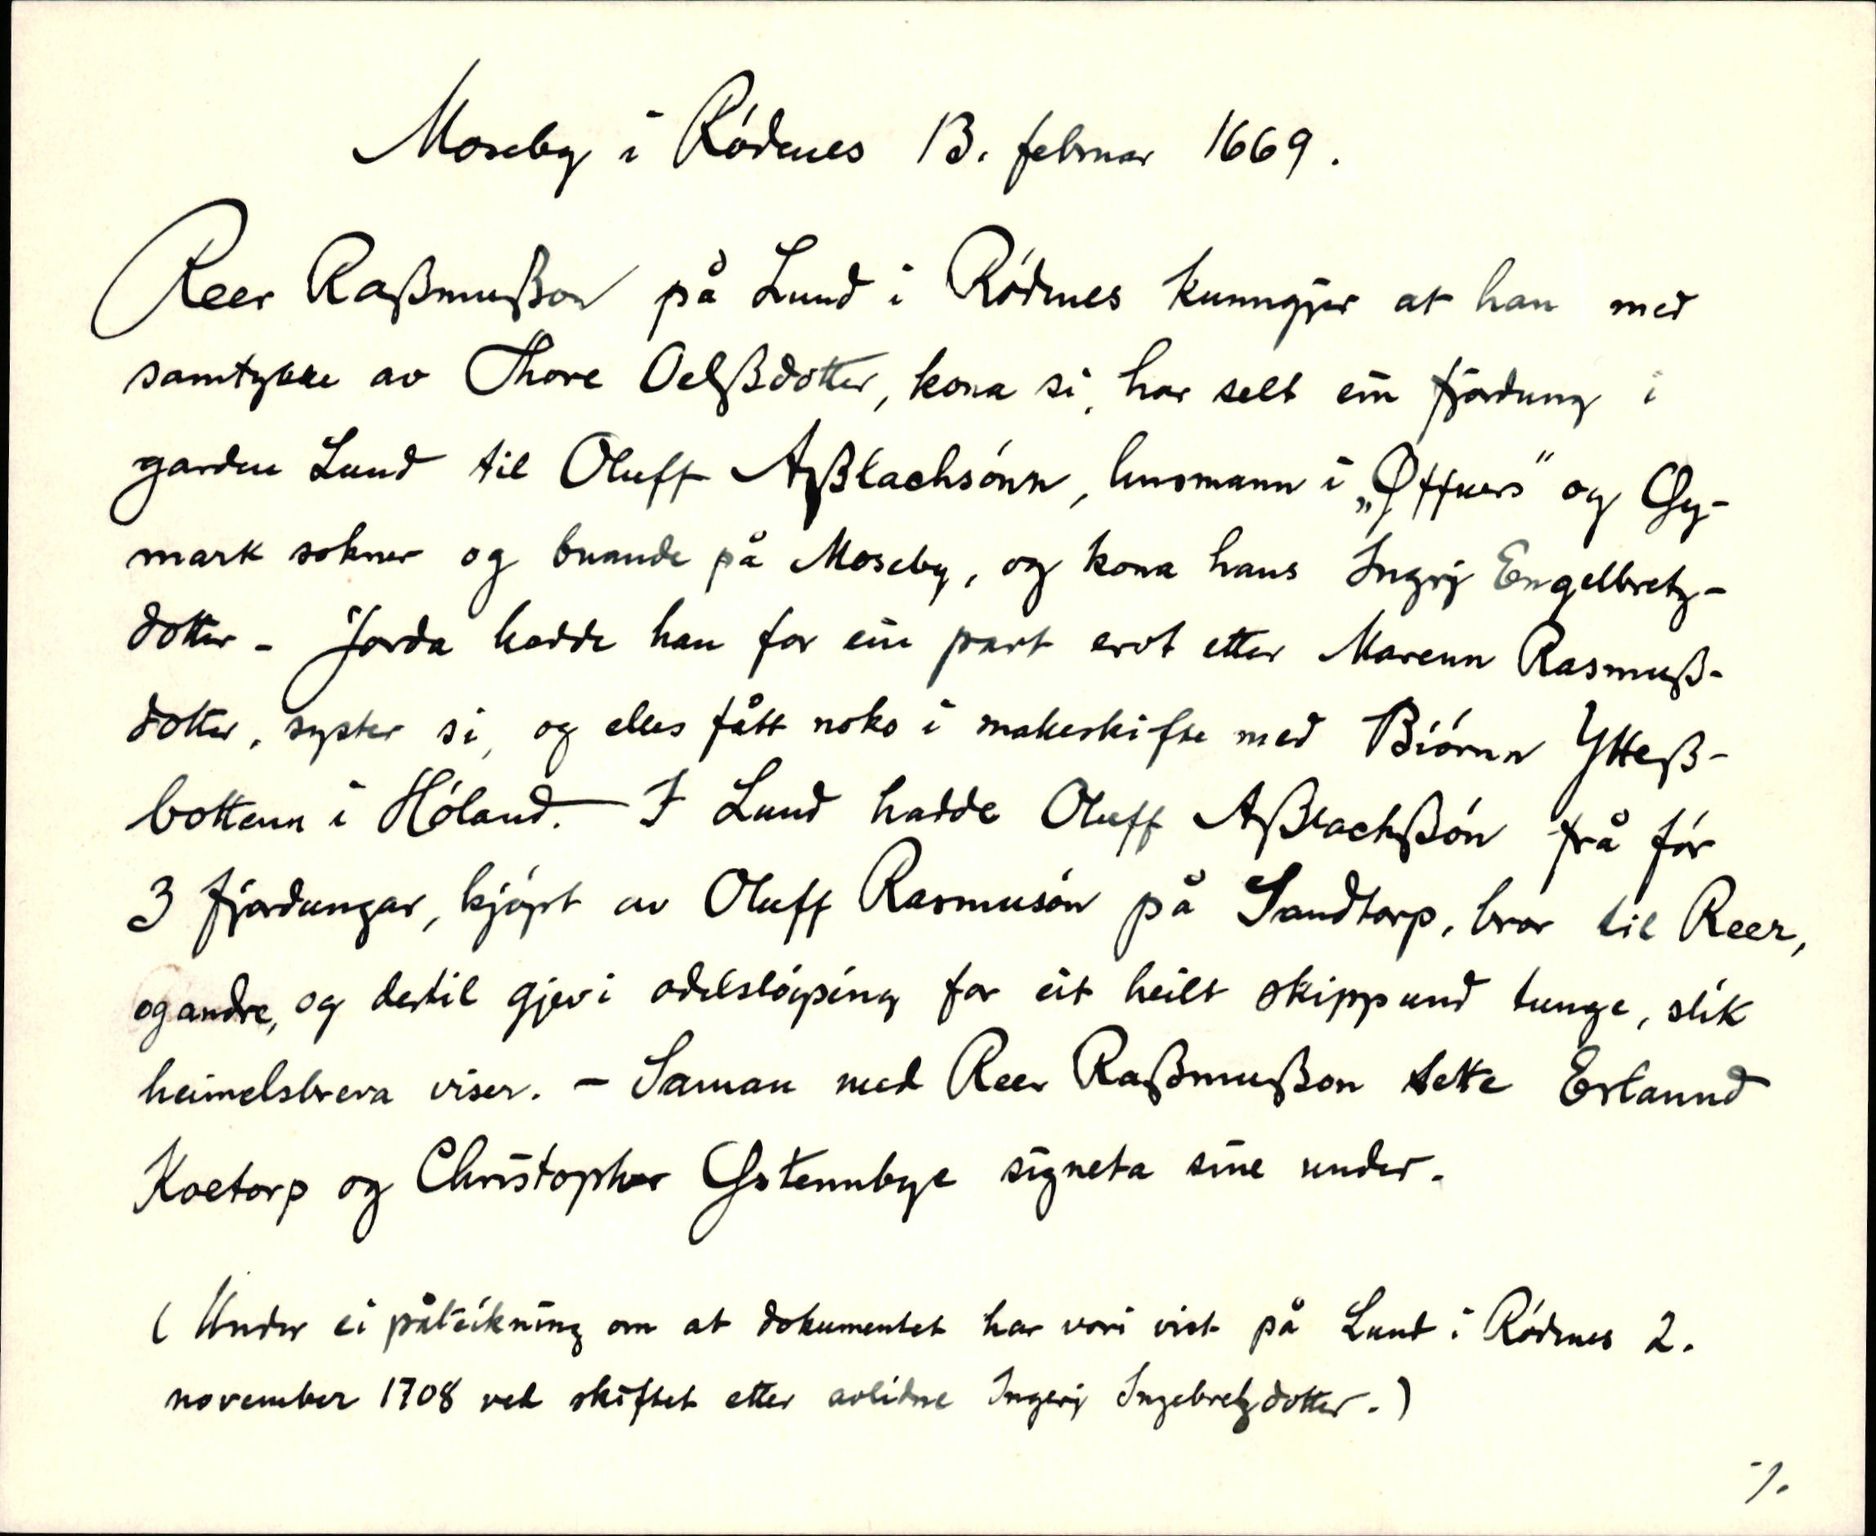 Moseby i Rødenes 13. februar 1669.
Reer Raßmußon på Lund i Rødenes kunngjer at han med
samtykke av Thore Oelßdotter, kona si, har selt ein fjordung i
garden Lund til Oluff Aßlachsønn, husmann i „Øffuers" og Gy-
mark sokner og buande på Moseby, og kona hans Ingrj Engelbretz-
dotter - Jorda hadde han for ein part ervt etter Marenn Rasmuß-
dotter, syster si, og elles fått noko i makeskifte med Biørnn Ytteß-
bottenn i Høland. - I Lund hadde Oluff Aßlachßøn frå før
3 fjordungar, kjøpt av Oluff Rasmusøn på Sandtorp, bror til Reer,
og andre, og dertil gjevi odelsløysing for eit heilt skippund tunge, slik
heimelsbreva viser. - Saman med Reer Raßmußon sette Erlannd
Koetorp og Christopher Gstennbye signeta sine under.
( Under ei påteikning om at dokumentet har vori vist på Lund i Rødenes 2.
november 1708 ved skiftet etter avlidne Ingerj Ingebretzdotter. )